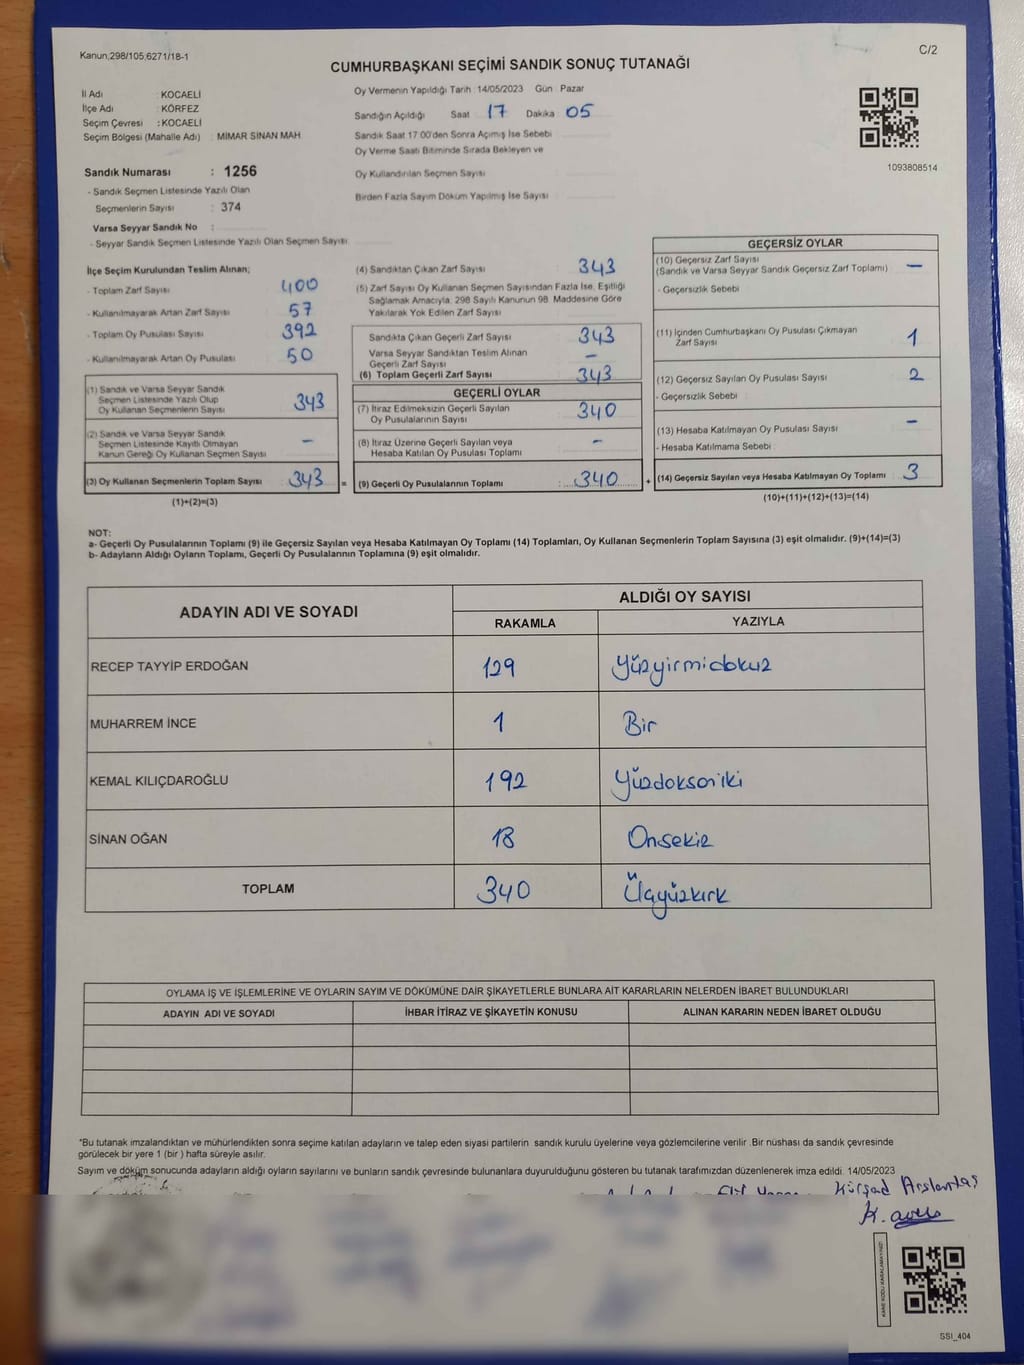 Kanun;298/105,6271/18-1
C/2
CUMHURBAŞKANI SEÇİMİ SANDIK SONUÇ TUTANAĞI
İl Adı : KOCAELİ
İlçe Adı : KÖRFEZ
Seçim Çevresi : KOCAELİ
Seçim Bölgesi (Mahalle Adı) : MİMAR SİNAN MAH.
Sandık Numarası : 1256
- Sandık Seçmen Listesinde Yazılı Olan
Seçmenlerin Sayısı : 374
Varsa Seyyar Sandık No :
- Seyyar Sandık Seçmen Listesinde Yazılı Olan Seçmen Sayısı
Oy Vermenin Yapıldığı Tarih : 14/05/2023 Gün : Pazar
Sandığın Açıldığı Saat 17 Dakika 05
Sandık Saat 17.00'den Sonra Açımış İse Sebebi
Oy Verme Saati Bitiminde Sırada Bekleyen ve
Oy Kullandırılan Seçmen Sayısı
Birden Fazla Sayım Döküm Yapılmış İse Sayısı
1093808514
İlçe Seçim Kurulundan Teslim Alınan;
- Toplam Zarf Sayısı : 400
- Kullanılmayarak Artan Zarf Sayısı : 57
- Toplam Oy Pusulası Sayısı : 392
- Kullanılmayarak Artan Oy Pusulası : 50
(1) Sandık ve Varsa Seyyar Sandık
Seçmen Listesinde Yazılı Olup
Oy Kullanan Seçmenlerin Sayısı : 343
(2) Sandık ve Varsa Seyyar Sandık
Seçmen Listesinde Kayıtlı Olmayan
Kanun Gereği Oy Kullanan Seçmen Sayısı : -
(3) Oy Kullanan Seçmenlerin Toplam Sayısı : 343 =
(1)+(2)=(3)
(4) Sandıktan Çıkan Zarf Sayısı : 343
(5) Zarf Sayısı Oy Kullanan Seçmen Sayısından Fazla İse, Eşitliği
Sağlamak Amacıyla, 298 Sayılı Kanunun 98. Maddesine Göre
Yakılarak Yok Edilen Zarf Sayısı
Sandıkta Çıkan Geçerli Zarf Sayısı : 343
Varsa Seyyar Sandıktan Teslim Alınan
Geçerli Zarf Sayısı : -
(6) Toplam Geçerli Zarf Sayısı : 343
GEÇERLİ OYLAR
(7) İtiraz Edilmeksizin Geçerli Sayılan
Oy Pusulalarının Sayısı : 340
(8) İtiraz Üzerine Geçerli Sayılan veya
Hesaba Katılan Oy Pusulası Toplamı : -
(9) Geçerli Oy Pusulalarının Toplamı : 340 +
GEÇERSİZ OYLAR
(10) Geçersiz Zarf Sayısı
(Sandık ve Varsa Seyyar Sandık Geçersiz Zarf Toplamı) : -
- Geçersizlik Sebebi
(11) İçinden Cumhurbaşkanı Oy Pusulası Çıkmayan
Zarf Sayısı 1
(12) Geçersiz Sayılan Oy Pusulası Sayısı : 2
- Geçersizlik Sebebi
(13) Hesaba Katılmayan Oy Pusulası Sayısı : -
- Hesaba Katılmama Sebebi
(14) Geçersiz Sayılan veya Hesaba Katılmayan Oy Toplamı : 3
(10)+(11)+(12)+(13)=(14)
NOT:
a- Geçerli Oy Pusulalarının Toplamı (9) ile Geçersiz Sayılan veya Hesaba Katılmayan Oy Toplamı (14) Toplamları, Oy Kullanan Seçmenlerin Toplam Sayısına (3) eşit olmalıdır. (9)+(14)=(3)
b- Adayların Aldığı Oyların Toplamı, Geçerli Oy Pusulalarının Toplamına (9) eşit olmalıdır.
ADAYIN ADI VE SOYADI
ALDIĞI OY SAYISI
RAKAMLA YAZIYLA
RECEP TAYYİP ERDOĞAN 129 Yüzyirmidokuz
MUHARREM İNCE 1 Bir
KEMAL KILIÇDAROĞLU 192 Yüzdoksaniki
SİNAN OĞAN 18 Onsekiz
TOPLAM 340 Üçyüzkırk
OYLAMA İŞ VE İŞLEMLERİNE VE OYLARIN SAYIM VE DÖKÜMÜNE DAİR ŞİKAYETLERLE BUNLARA AİT KARARLARIN NELERDEN İBARET BULUNDUKLARI
ADAYIN ADI VE SOYADI İHBAR İTİRAZ VE ŞİKAYETİN KONUSU ALINAN KARARIN NEDEN İBARET OLDUĞU
*Bu tutanak imzalandıktan ve mühürlendikten sonra seçime katılan adayların ve talep eden siyasi partilerin sandık kurulu üyelerine veya gözlemcilerine verilir .Bir nüshası da sandık çevresinde
görülecek bir yere 1 (bir ) hafta süreyle asılır.
Sayım ve döküm sonucunda adayların aldığı oyların sayılarını ve bunların sandık çevresinde bulunanlara duyurulduğunu gösteren bu tutanak tarafımızdan düzenlenerek imza edildi. 14/05/2023
Kürşad Arslantaş
SSI_404